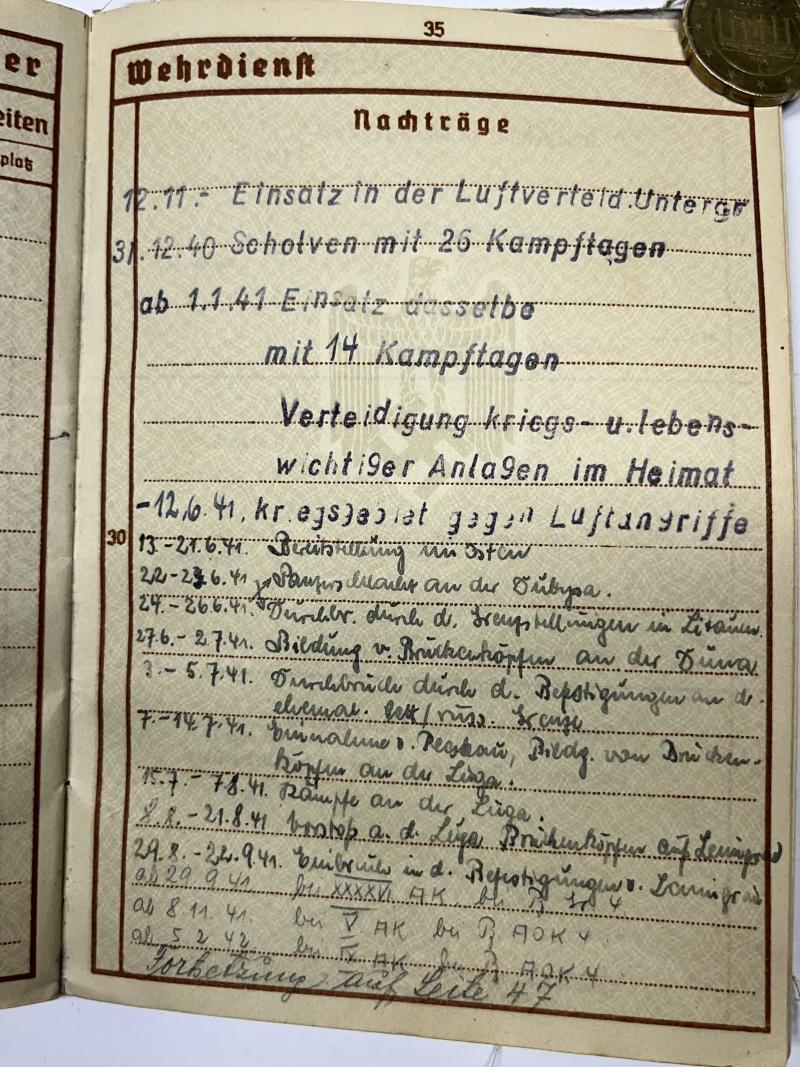 35
er
Wehrdienst
eiten
Nachträge
platz
12.11.- Einsatz in der Luftverteid. Untergr
31.12.40 Scholven mit 26 Kampftagen
ab 1.1.41 Einsatz dasselbe
mit 14 Kampftagen
Verteidigung kriegs- u. lebens-
wichtiger Anlagen im Heimat
-12.6.41. kriegsgebiet gegen Luftangriffe
30
13.-21.6.41. Bereitstellung im Osten
22.-23.6.41 Panzerschlacht an der Dubysa.
24.-26.6.41. Durchbr. durch d. Grenzstellungen in Litauen.
27.6.- 2.7.41. Bildung v. Brückenköpfen an der Düna
3.- 5.7.41. Durchbruch durch d. Befestigungen an d.
ehemal. lett/russ. Grenze
7.-14.7.41. Einnahme v. Pleskau, Bildg. von Brücken-
köpfen an der Luga.
15.7.- 7.8.41. Kämpfe an der Luga.
8.8.-21.8.41 Vorstoß a. d. Luga Brückenköpfen auf Leningrad
29.8.-22.9.41. Einbruch in d. Befestigungen v. Leningrad
ab 29.9.41. bei XXXXVI AK. bei Pz 4
ab 8.11.41. bei V AK bei Pz AOK 4
ab 5.2.42. bei IX AK bei Pz AOK 4
Fortsetzung auf Seite 47